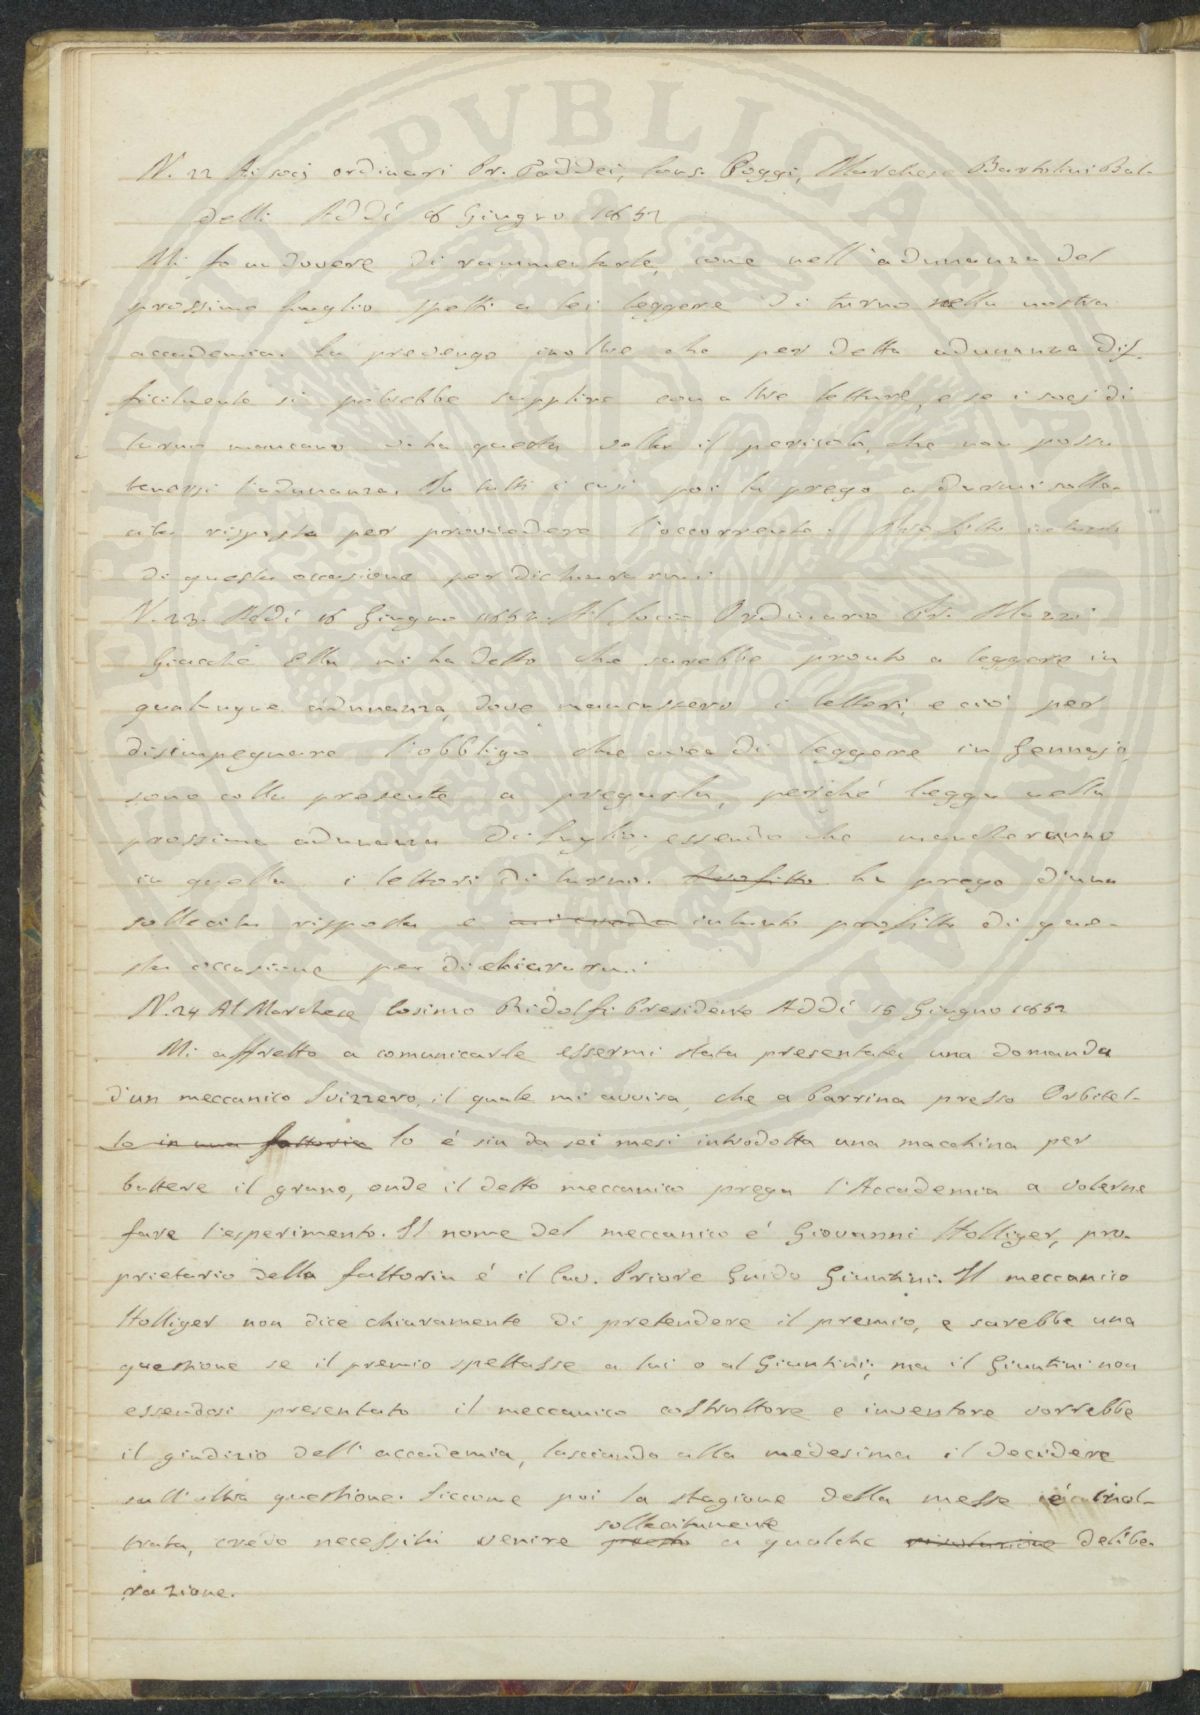 N. 22 Ai socj ordinari Pr. Taddei, Cons. Poggi, Marchese Bartolini Bal-
delli Addí 16 Giugno 1852
Mi fo un dovere di rammentarle, come nell'adunanza del
prossimo luglio spetti a lei leggere di turno nella nostra
accademia. La prevengo inoltre che per detta adunanza dif-
ficilmente si potrebbe supplire con altre letture, e se i socj di
turno mancano vi ha questa volta il pericolo, che non possa
tenersi l'adunanza. In tutti i casi poi la prego a darmi solle-
cita risposta per provvedere l'occorrente. Profitto intanto
di questa occasione per dichiararmi
N. 23. Addí 16 Giugno 1852. Al Socio Ordinario Pr. Mazzi
Giacché Ella mi ha detto che sarebbe pronto a leggere in
qualunque adunanza, dove mancassero i lettori, e ció per
disimpegnare l'obbligo che avea di leggere in Gennajo,
sono colla presente a pregarla, perché legga nella
prossima adunanza di luglio, essendo che mancheranno
in quella i lettori di turno. Profitto La prego d'una
sollecita risposta e mi creda intanto profitto di que-
sta occasione per dichiararmi
N. 24 Al Marchese Cosimo Ridolfi Presidente Addí 16 Giugno 1852
Mi affretto a comunicarle essermi stata presentata una domanda
d'un meccanico Svizzero, il quale mi avvisa, che a Parrina presso Orbitel-
lo in una fattoria lo é sin da sei mesi introdotta una macchina per
battere il grano, onde il detto meccanico prega l'Accademia a volerne
fare l'esperimento. Il nome del meccanico é Giovanni Holliger, pro-
prietario della fattoria é il Cav. Priore Guido Giuntini. Il meccanico
Holliger non dice chiaramente di pretendere il premio, e sarebbe una
questione se il premio spettasse a lui o al Giuntini; ma il Giuntini non
essendosi presentato il meccanico costruttore e inventore vorrebbe
il giudizio dell'accademia, lasciando alla medesima il decidere
sull'altra questione. Siccome poi la stagione della messe é inol-
sollecitamente
trata, credo necessità venire presto a qualche risoluzione delibe-
razione.
PVBLICAE